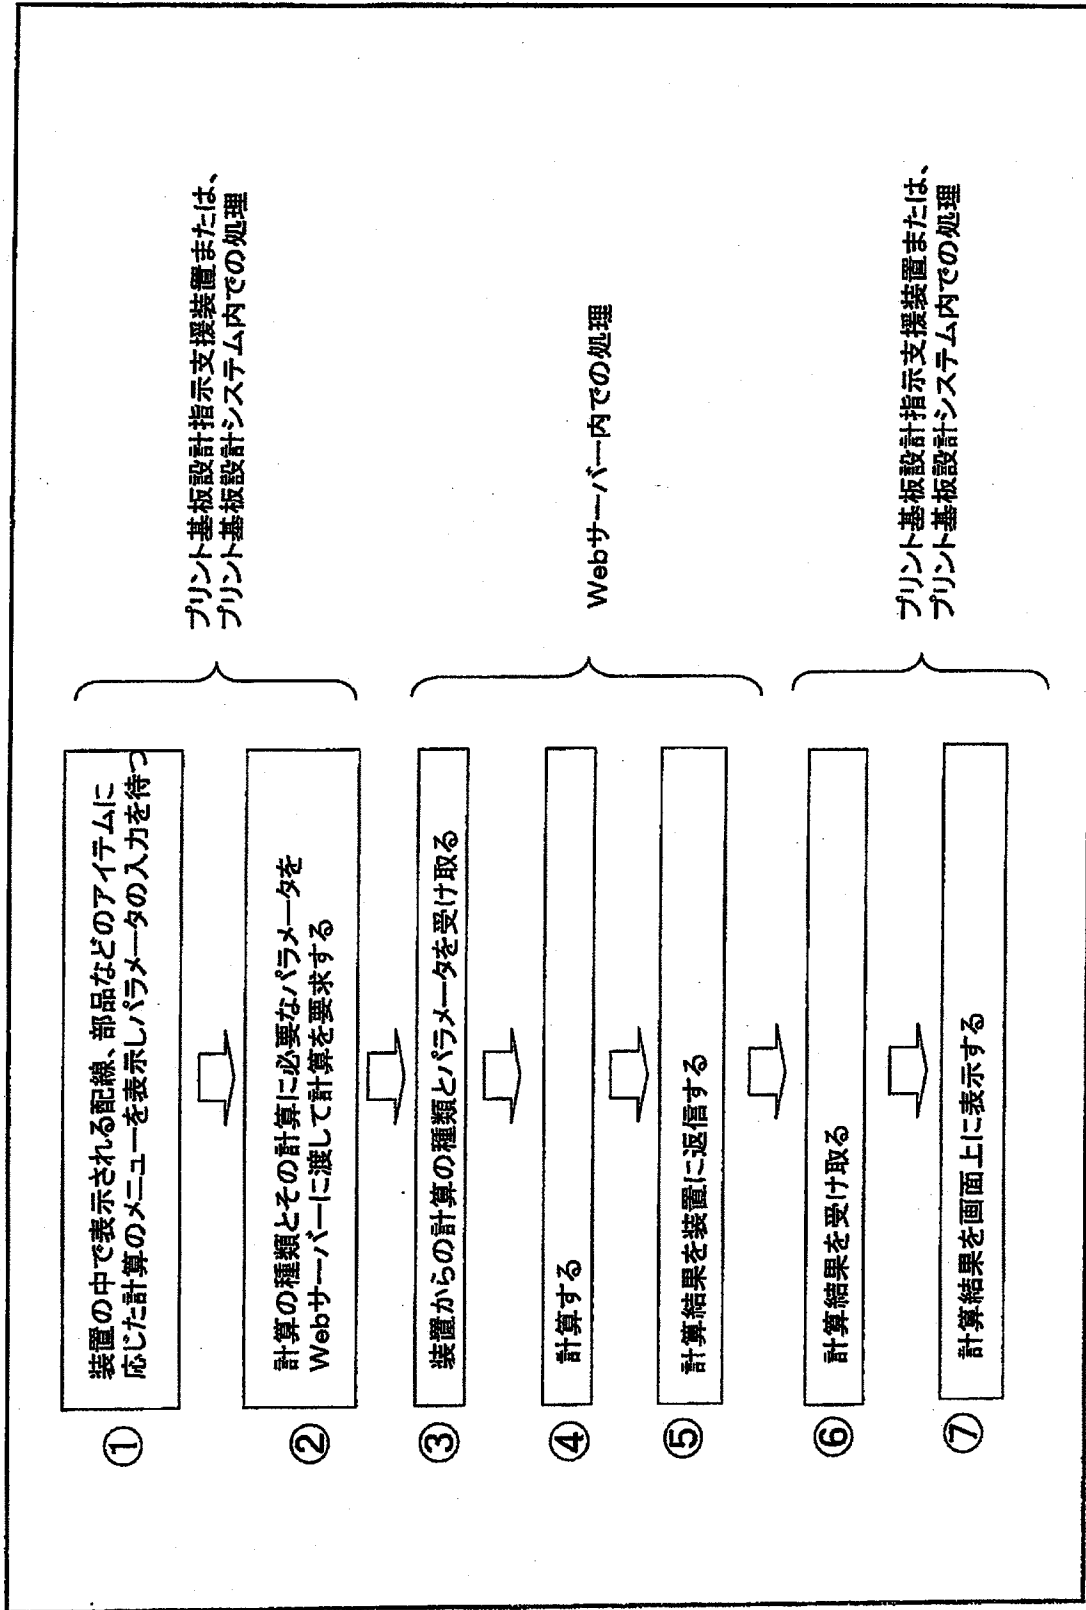 ①
装置の中で表示される配線、部品などのアイテムに
応じた計算のメニューを表示しパラメータの入力を待つ
②
計算の種類とその計算に必要なパラメータを
Webサーバーに渡して計算を要求する
プリント基板設計指示支援装置または、
プリント基板設計システム内での処理
③
装置からの計算の種類とパラメータを受け取る
④
計算する
⑤
計算結果を装置に返信する
Webサーバー内での処理
⑥
計算結果を受け取る
⑦
計算結果を画面上に表示する
プリント基板設計指示支援装置または、
プリント基板設計システム内での処理